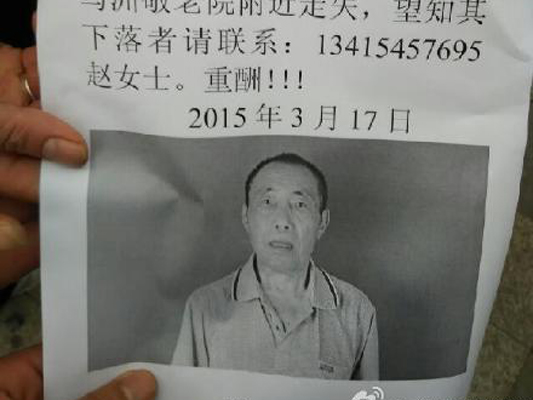 洲敬老院附近走失，望知其
下落者请联系：13415457695
赵女士。重酬!!!
2015年3月17日